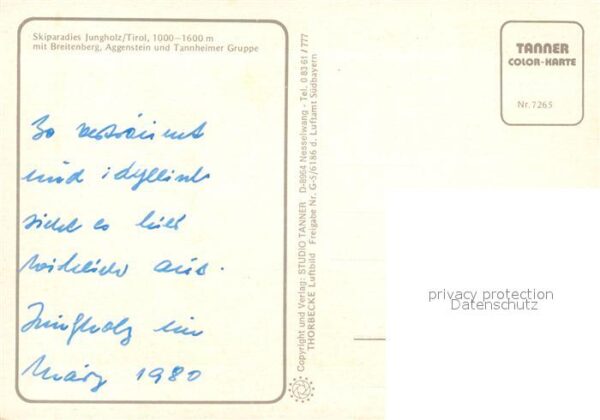 Skiparadies Jungholz/Tirol, 1000—1600 m
mit Breitenberg, Aggenstein und Tannheimer Gruppe
So verträumt
und idyllisch
sieht es hier
wirklich aus.
Jungholz im
März 1980
Copyright und Verlag: STUDIO TANNER D-8964 Nesselwang - Tel. 0 83 61 / 777
THORBECKE Luftbild Freigabe Nr. G-5/6186 d. Luftamt Südbayern
TANNER
COLOR-KARTE
Nr. 7265
privacy protection
Datenschutz